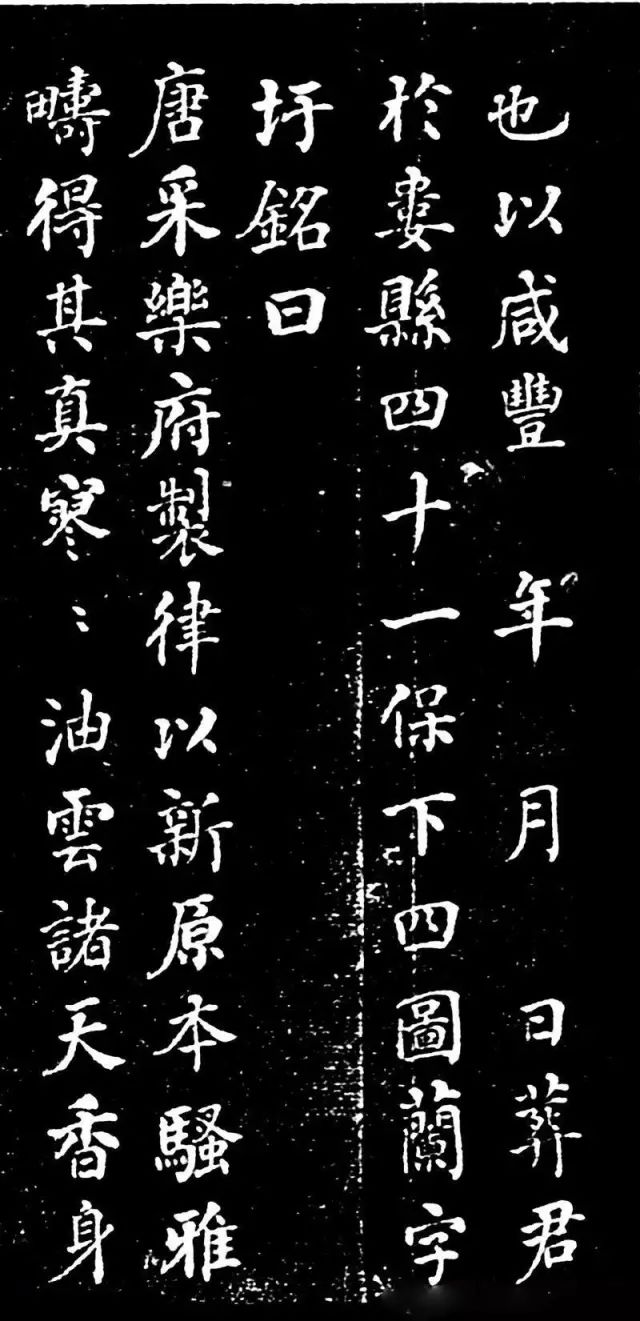 也以咸豐 年 月 日葬君
於婁縣四十一保下四圖蘭字
圩銘曰
唐采樂府製律以新原本騷雅
疇得其真寥〻油雲諸天香身